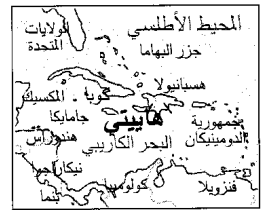 المحيط الأطلسي
الولايات
المتحدة
جزر البهاما
هسبانيولا
كوبا
المكسيك
جامايكا
هاييتي
جمهورية
الدومينيكان
هندوراس
البحر الكاريبي
نيكاراجوا
كولومبيا
فنزويلا
بنما